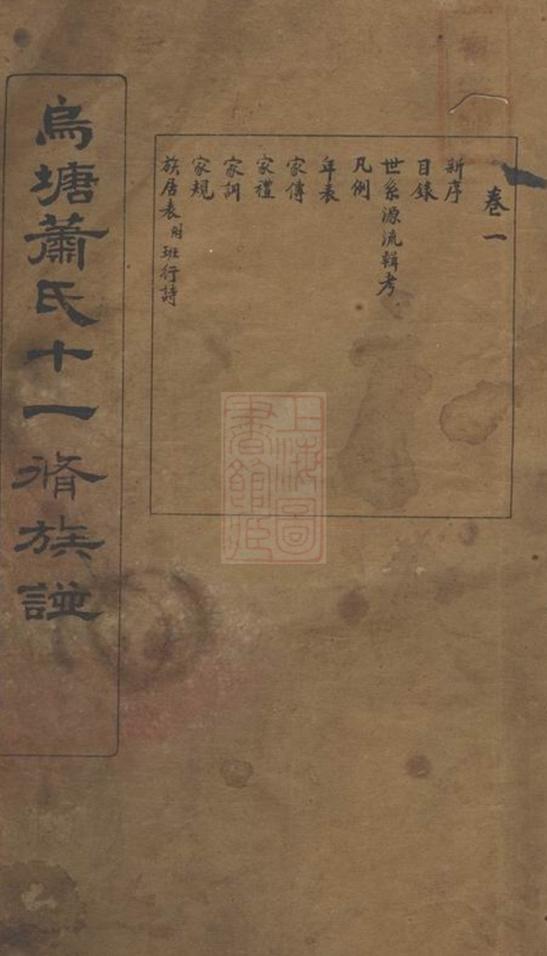 卷一
新序
目錄
世系源流輯考
凡例
年表
家傳
家禮
家訓
家規
族居表附班行詩
烏塘蕭氏十一脩族譜
上海圖
書館藏